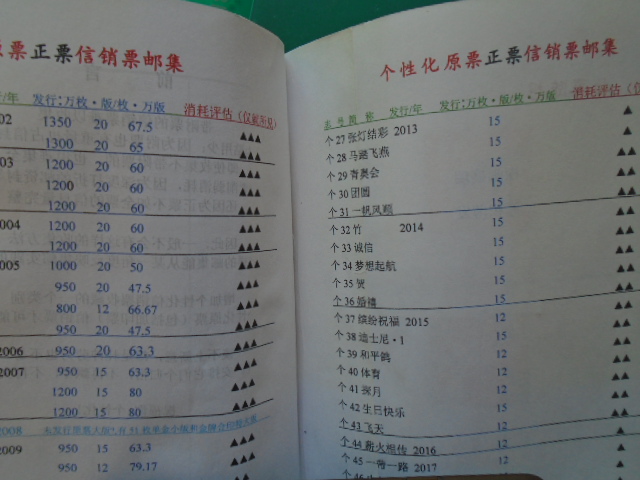 票正票信销票邮集
/年 发行:万枚·版/枚·万版 消耗评估(仅献所见)
02 1350 20 67.5 ▲▲▲
1300 20 65 ▲▲▲
003 1200 20 60 ▲▲▲
1200 20 60 ▲▲▲
1200 20 60 ▲▲▲
2004 1200 20 60 ▲▲▲
1200 20 60 ▲▲▲
2005 1000 20 50 ▲▲▲
950 20 47.5 ▲▲▲
800 12 66.67 ▲▲▲
950 20 47.5 ▲▲▲
2006 950 20 63.3 ▲▲▲
2007 950 15 63.3 ▲▲▲
1200 15 80 ▲▲▲
1200 15 80 ▲▲▲
2008
2009 950 15 63.3 ▲▲▲
950 12 79.17 ▲▲▲
个性化原票正票信销票邮集
志号 图称 发行/年 发行:万枚·版/枚·万版 消耗评估(仅献所见)
个27 张灯结彩 2013 15 ▲
个28 马踏飞燕 15 ▲
个29 青奥会 15 ▲▲
个30 团圆 15 ▲▲
个31 一帆风顺 15 ▲▲
个32 竹 2014 15 ▲▲
个33 诚信 15 ▲▲
个34 梦想起航 15 ▲▲
个35 贺 15 ▲▲
个36 婚禧 15 ▲▲
个37 缤纷祝福 2015 12 ▲▲
个38 迪士尼·1 12 ▲▲
个39 和平鸽 12 ▲▲
个40 体育 12 ▲▲
个41 探月 12 ▲▲
个42 生日快乐 12 ▲▲
个43 飞天 12 ▲
个44 薪火相传 2016 12 ▲
个45 一带一路 2017 12 ▲